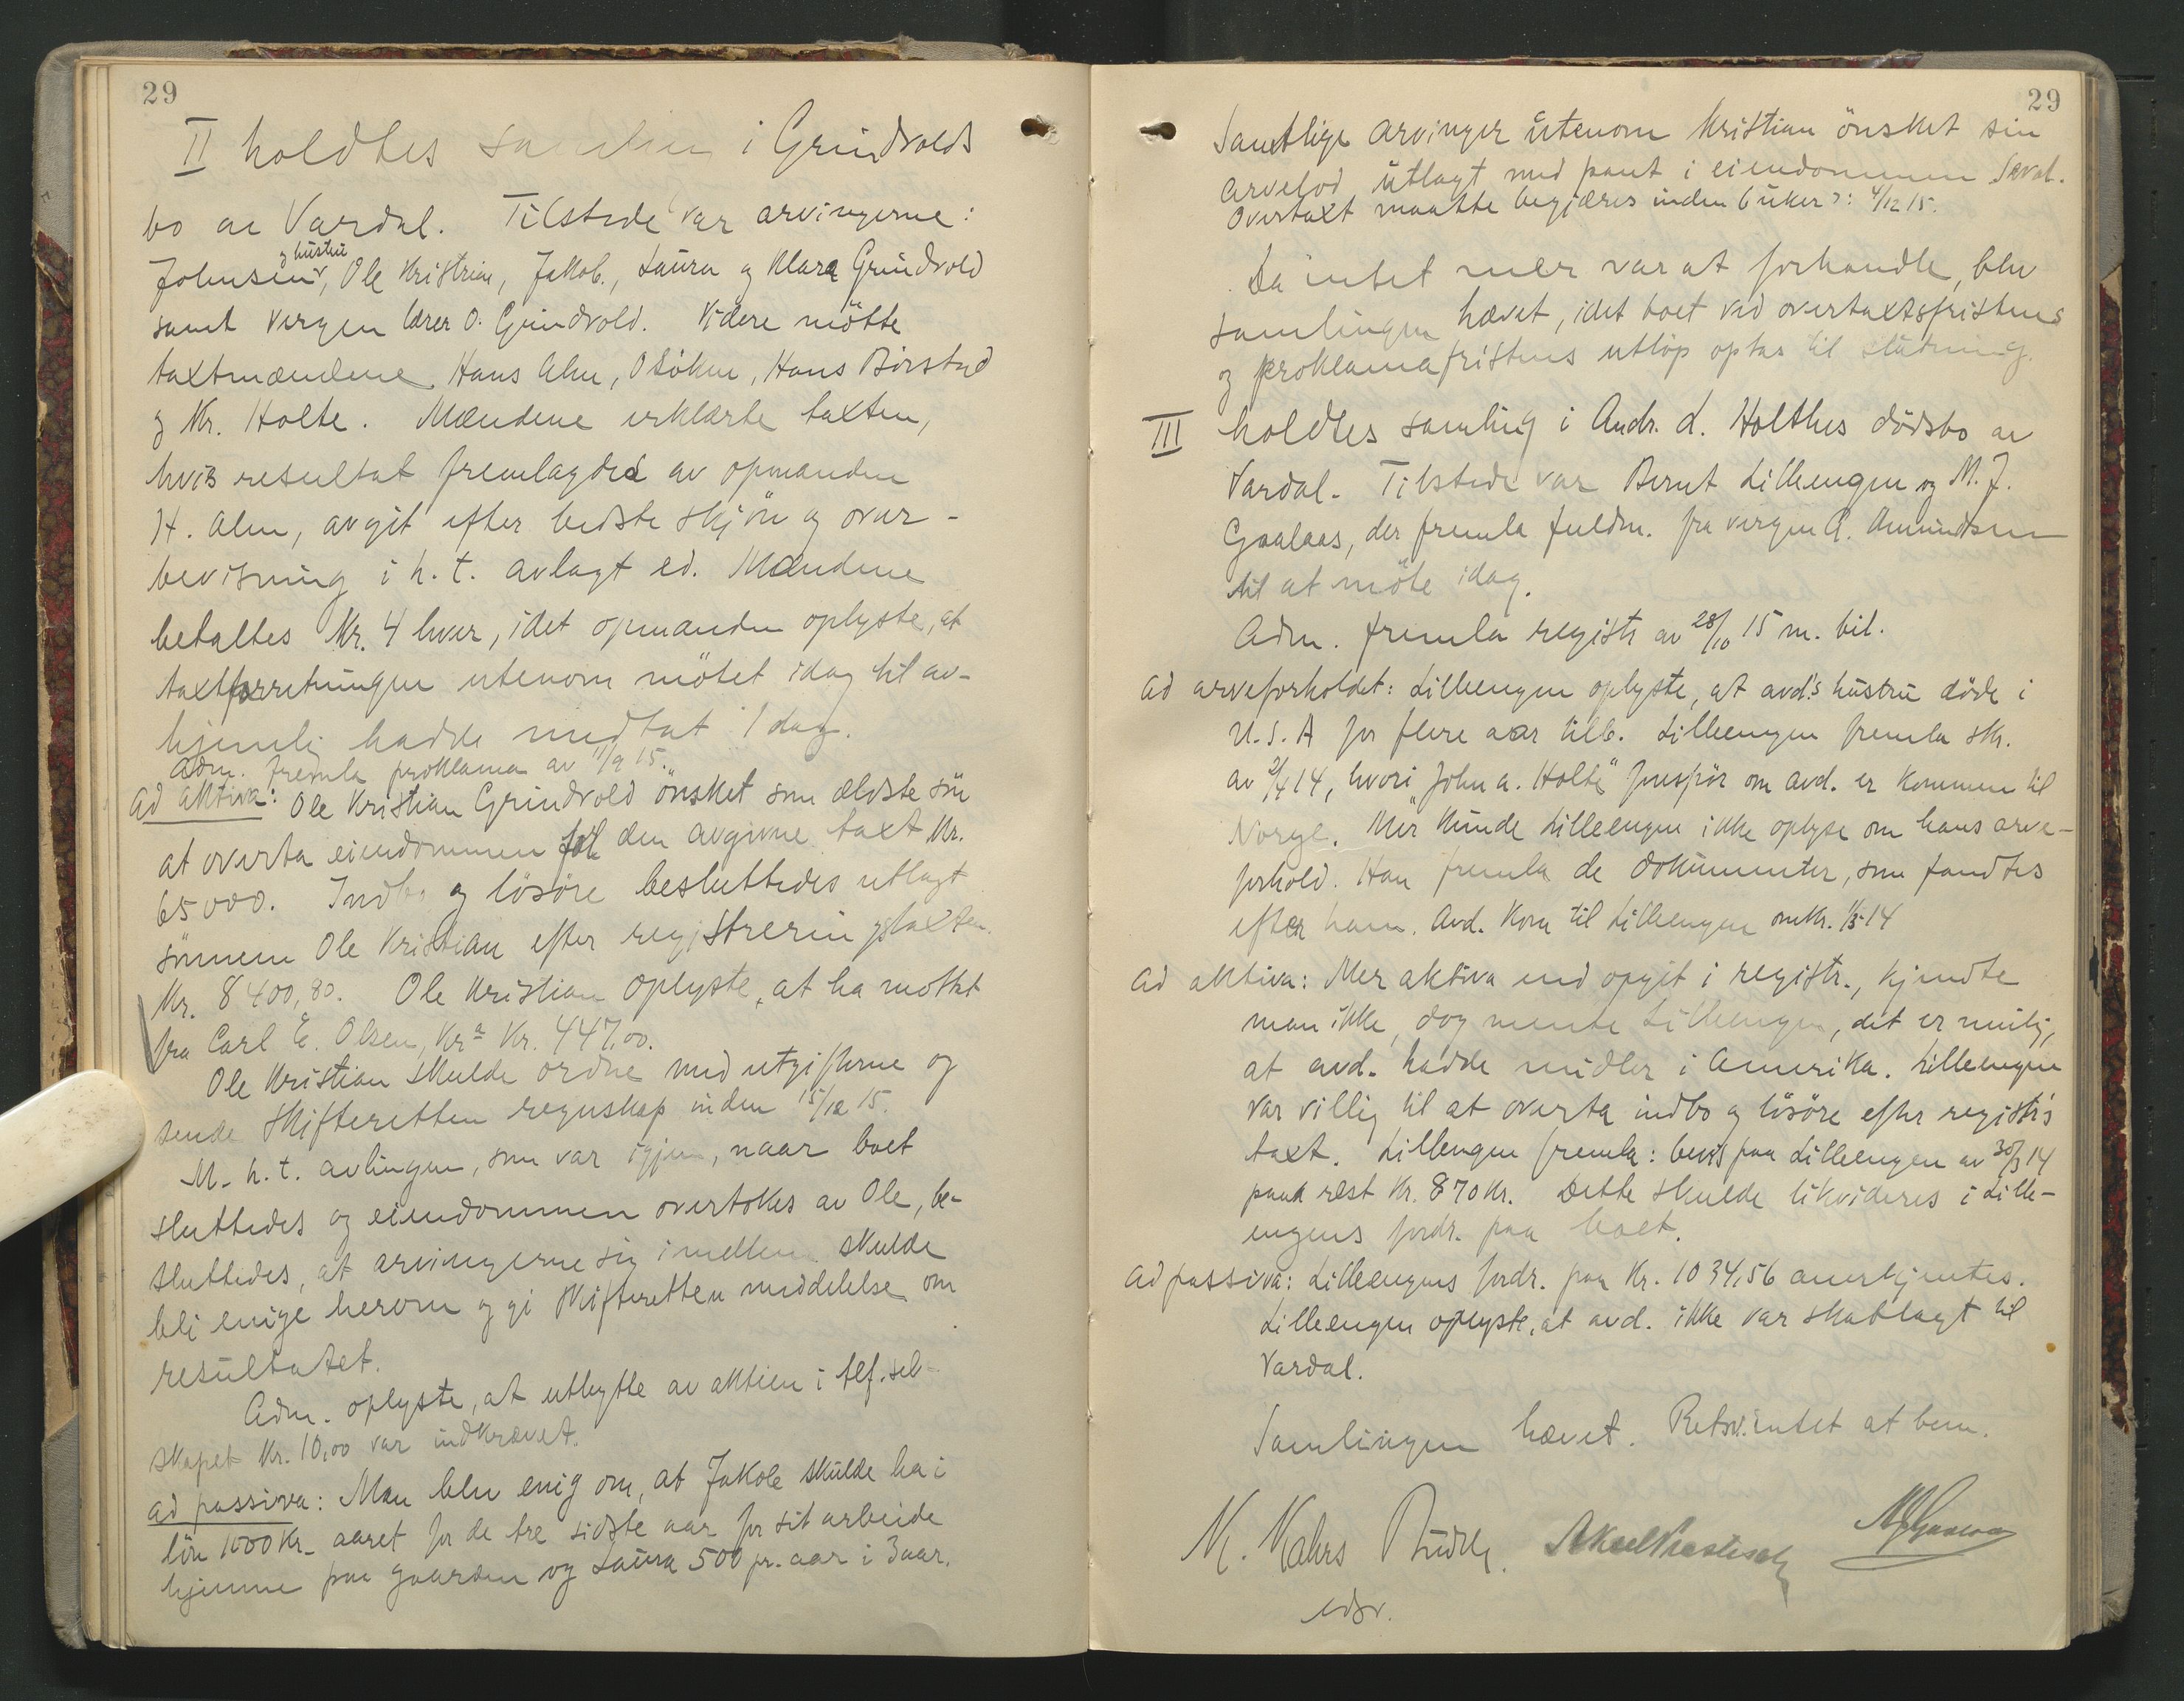 29
II holdtes samling i Grindvolds
bo av Vardal. Tilstede var arvingerne:
og hustru
Johnsen, Ole Kristian, Jakob, Laura og Klara Grindvold
samt vergen lærer O. Grindvold. Videre mötte
taxtmændene Hans Alm, O Sökin, Hans Börstad
og Kr. Holte. Mændene erklærte taxten,
hvis resultat fremlagdes av opmanden
H. Alm, avgit efter bedste skjön og over-
bevisning i h. t. avlagt ed. Mændene
betaltes Kr. 4 hver, idet opmanden oplyste, at
taxtforretningen utenom mötet idag til av-
hjemling hadde medtat 1 dag.
Adm. fremla proklama av 11/9 15.
Ad aktiva: Ole Kristian Grindvold önsket som ældste sön
at overta eiendommen for den avgivne taxt Kr.
65000. Indbo og lösöre besluttedes utlagt
sönnen Ole Kristian efter registreringstaxten
Kr. 8400,80. Ole Kristian oplyste, at ha mottat
fra Carl E. Olsen, Kra Kr. 447,00.
Ole Kristian skulde ordne med utgifterne og
sende skifteretten regnskap inden 15/12 15.
M. h. t. avlingen, som var igjen, naar boet
sluttedes og eiendommen overtokes av Ole, be-
sluttedes, at arvingerne sig imellem skulde
bli enige herom og gi skifteretten meddelelse om
resultatet.
Adm. oplyste, at utbytte av aktien i tlf. sel-
skapet Kr. 10,00 var indkrævet.
Ad passiva: Man blev enig om, at Jakob skulde ha i
lön 1000 Kr. aaret for de tre sidste aar for sit arbeide
hjemme paa gaarden og Laura 500 pr. aar i 3 aar.
29
Samtlige arvinger utenom Kristian önsket sin
arvelod utlagt med pant i eiendommen Sevat.
Overtaxt maatte begjæres inden 6 uker ɔ: 4/12 15.
Da intet mer var at forhandle, blev
samlingen hævet, idet boet ved overtaxtsfristens
og proklamafristens utlöp optas til slutning.
III holdtes samling i Andr. L. Holthes dödsbo av
Vardal. Tilstede var Bernt Lilleengen og M. J.
Gaalaas, der fremla fuldm. fra vergen A. Amundsen
til at möte idag.
Adm. fremla registr av 28/10 15 m. bil.
Ad arveforholdet: Lilleengen oplyste, at avd.'s hustru döde i
U. S. A for flere aar tilb. Lilleengen fremla skr.
av 2/4 14, hvori "John A. Holte" forespör om avd. er kommen til
Norge. Mer kunde Lilleengen ikke oplyse om hans arve-
forhold. Han fremla de dokumenter, som fandtes
efter ham. Avd. kom til Lilleengen omkr. 1/3 14
Ad aktiva: Mer aktiva end opgit i registr., kjendte
man ikke, dog mente Lilleengen, det er mulig,
at avd. hadde midler i Amerika. Lilleengen
var villig til at overta indbo og lösöre efter registr's
taxt. Lilleengen fremla: bevis paa Lilleengen av 30/3 14
paa rest Kr. 870 Kr. Dette skulde likvideres i Lille-
engens fordr. paa boet.
Ad passiva: Lilleengens fordr. paa Kr. 1034,56 anerkjentes.
Lilleengen oplyste, at avd. ikke var skatlagt til
Vardal.
Samlingen hævet. Retsv. intet at bem.
N. Mahrs
edsv.